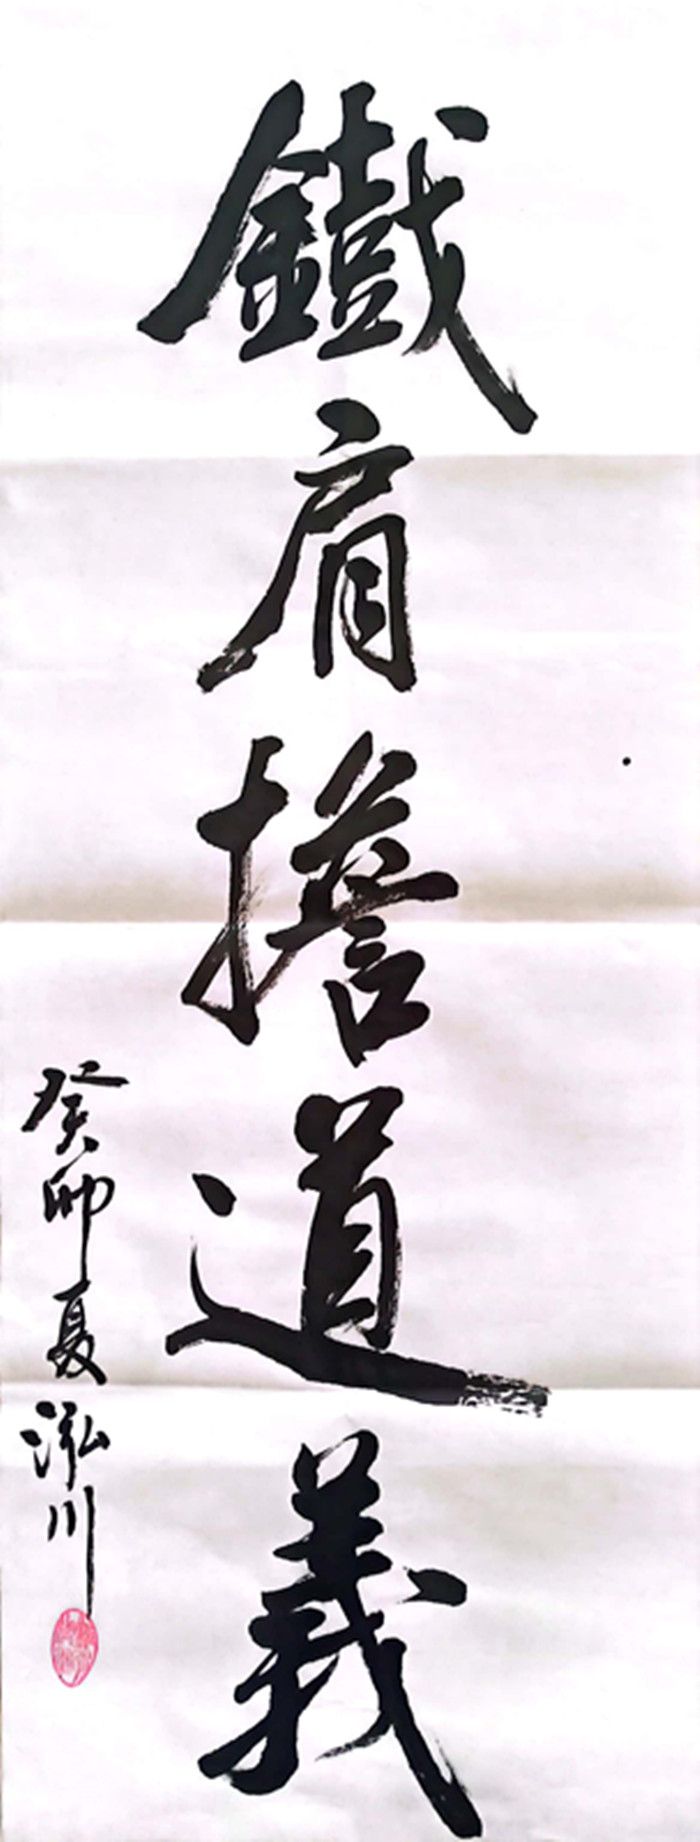 鐵肩擔道義
癸卯夏泓川